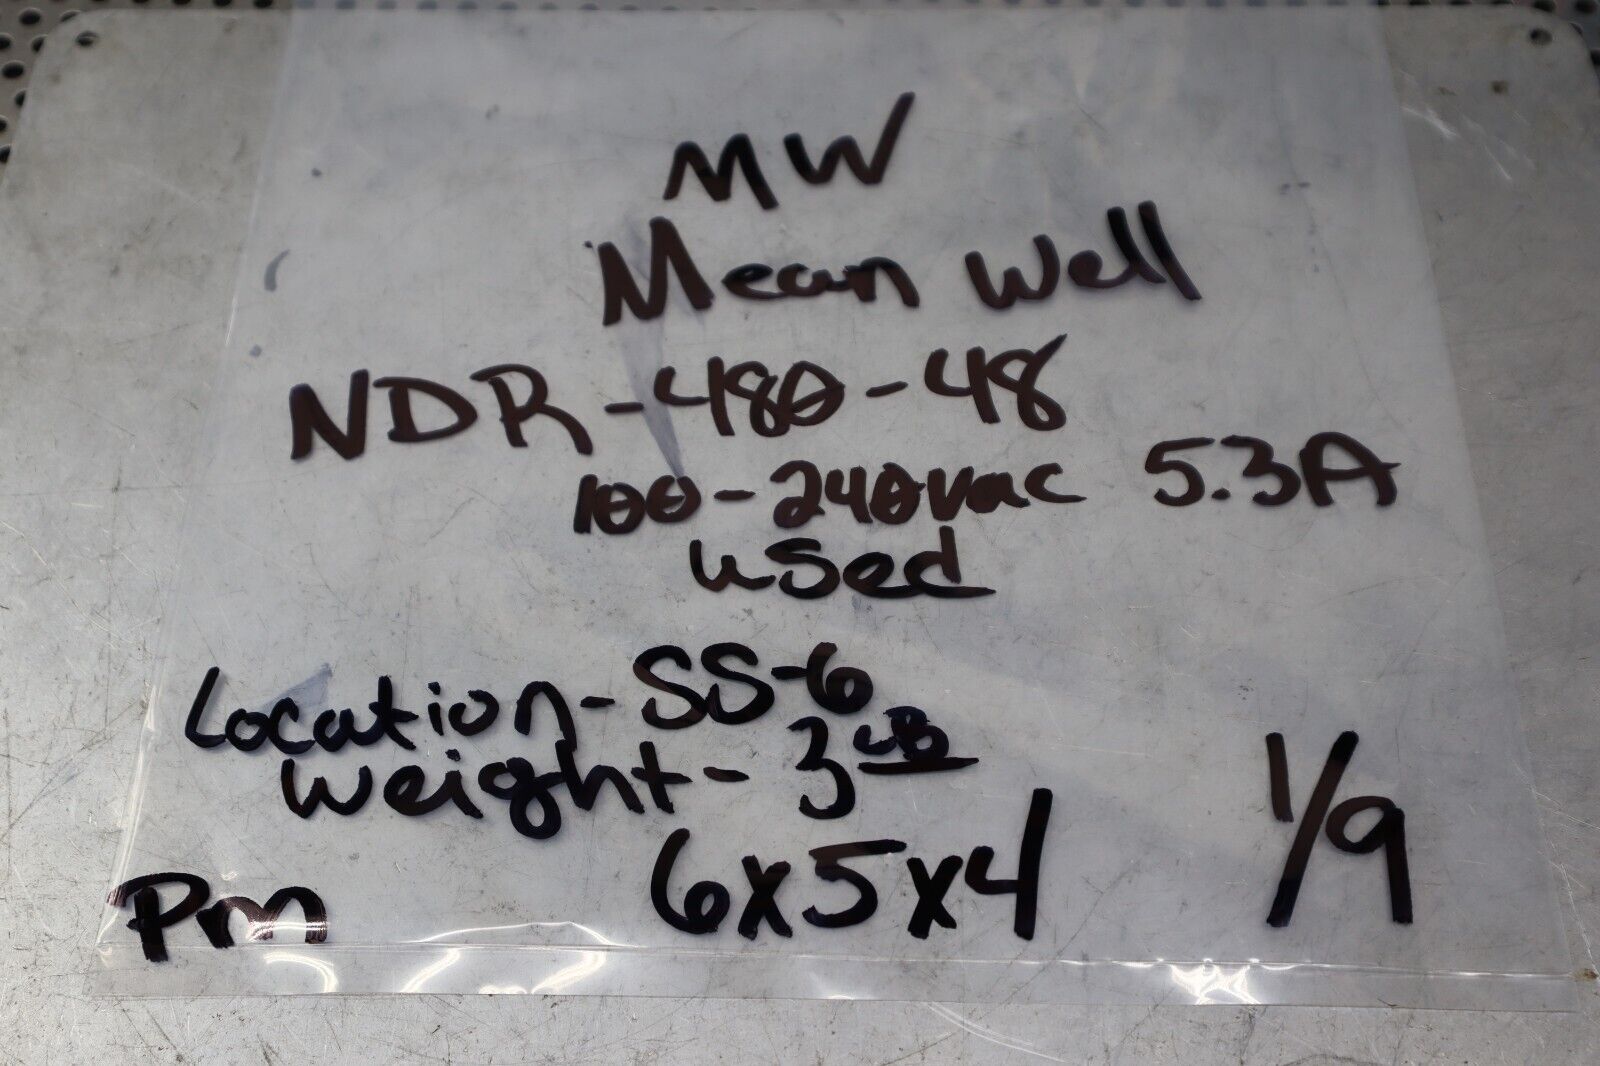 MW
Mean Well
NDR-480-48
100-240vac 5.3A
used
Location-SS-6
weight-3 LB
6x5x4
1/9
Pm